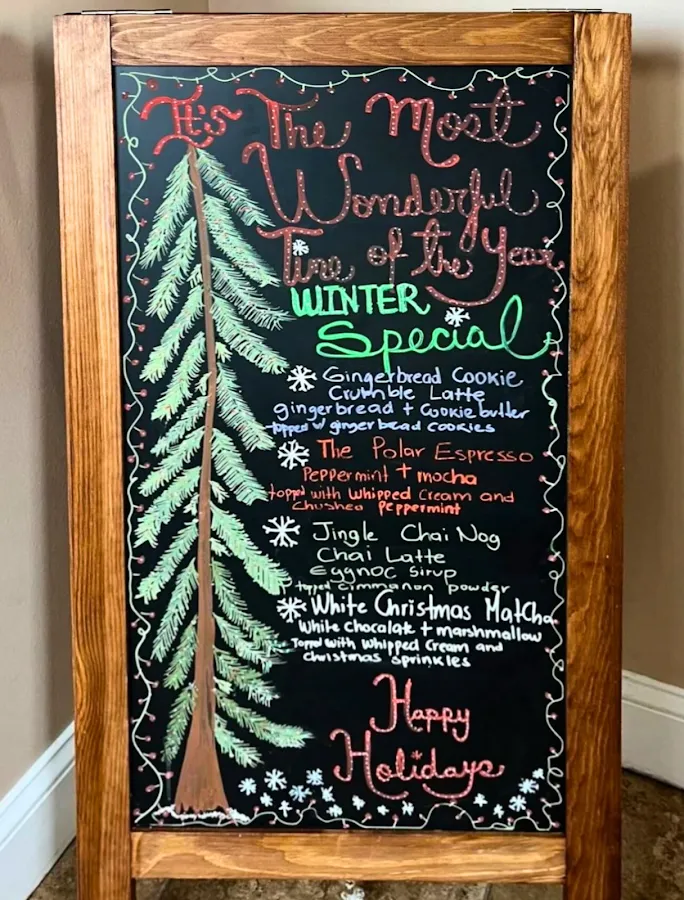 It's The Most
Wonderful
Time of the Year
WINTER
Special
Gingerbread Cookie
Crumble Latte
gingerbread + Cookie butter
topped w/ gingerbread cookies
The Polar Espresso
Peppermint + mocha
topped with Whipped Cream and
Chushed Peppermint
Jingle Chai Nog
Chai Latte
Eggnog Sirup
topped cinnamon powder
White Christmas Matcha
White Chocolate + marshmallow
Topped with Whipped Cream and
christmas sprinkles
Happy
Holidays